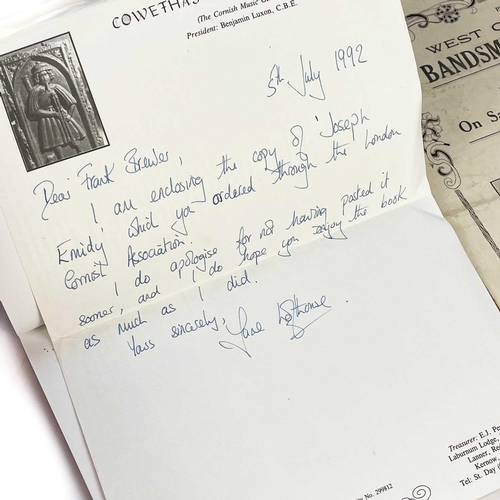 COWETHAS
(The Cornish Music G
President: Benjamin Luxon, C.B.E.
5th July 1992
Dear Frank Brewer,
I am enclosing the copy of 'Joseph
Emidy' which you ordered through the London
Cornish Association.
I do apologise for not having posted it
sooner, and I do hope you enjoy the book
as much as I did.
Yours sincerely,
Jane
WEST C
BANDSM
On Sa
Treasurer: E.J. Pe
Laburnum Lodge,
Lanner, Re
Kernow
Tel: St. Day (
No. 299812